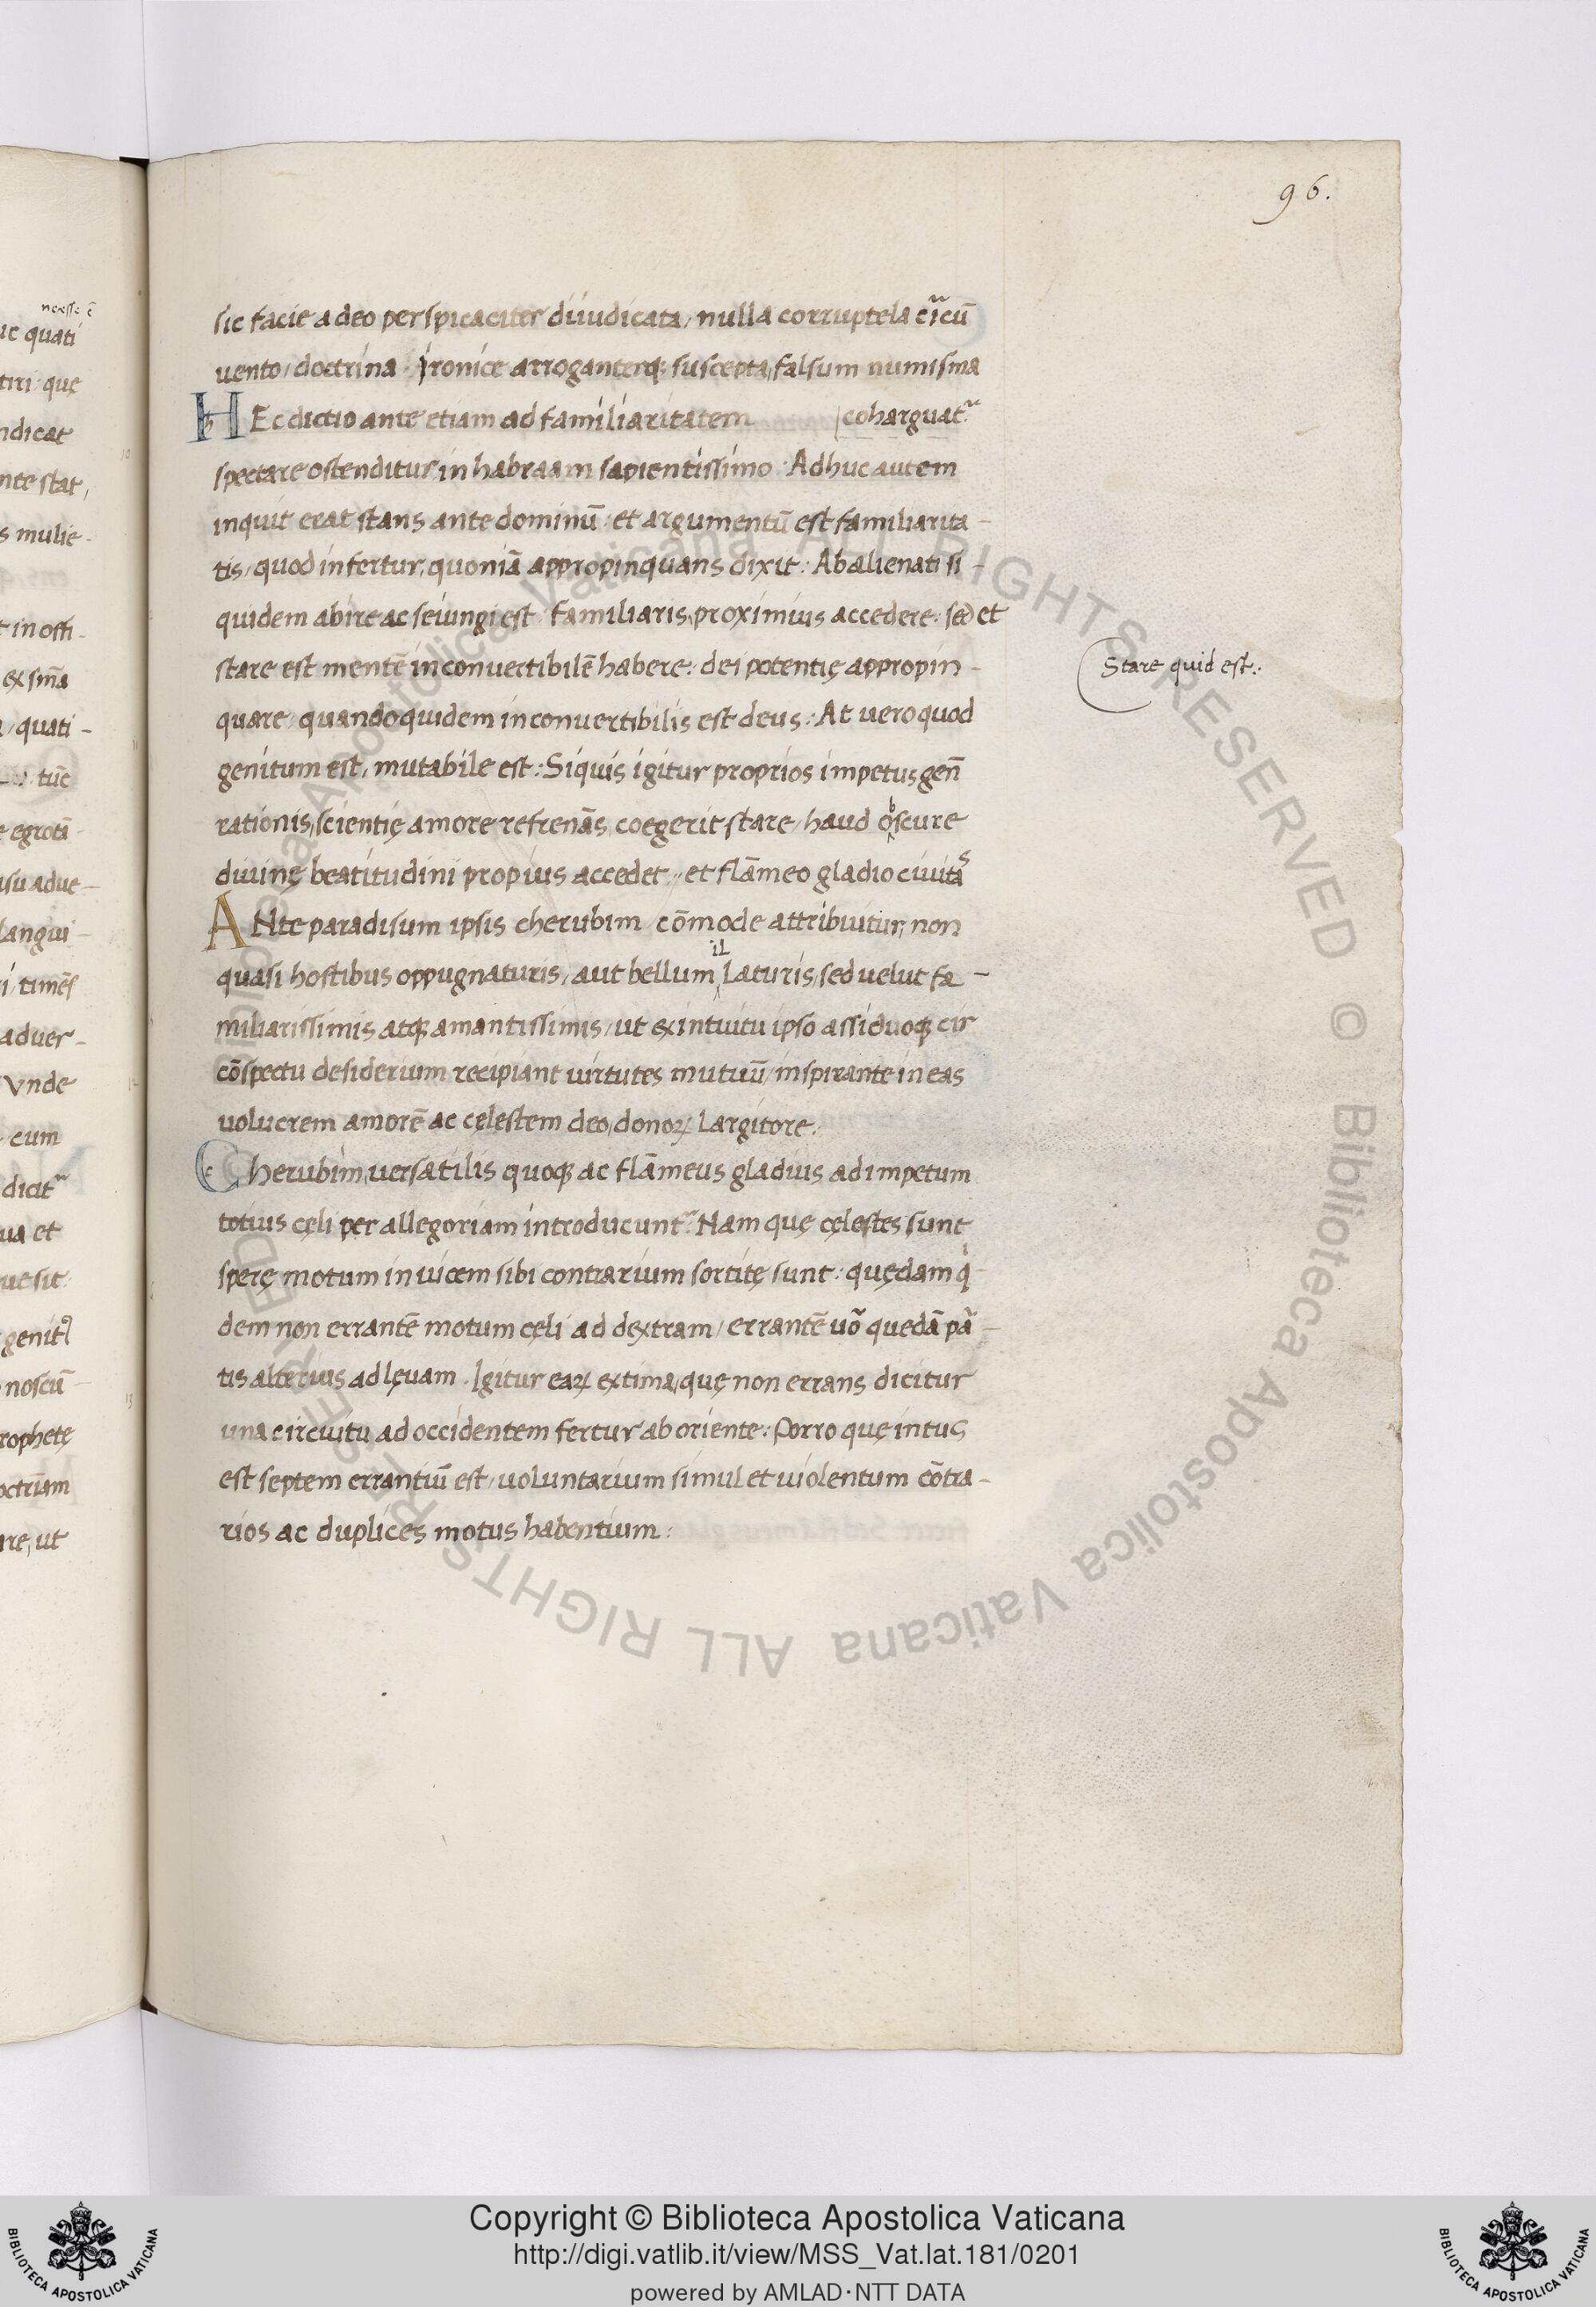 96.
sic facie a deo perspicaciter diiudicata, nulla corruptela circū
uento, doctrina. ironice arroganterq; suscepta, falsum numisma
HEc dictio ante etiam ad familiaritatem coharguatr̃
spectare ostenditur in habraam sapientissimo: Adhuc autem
inquit erat stans ante dominū: et argumentū est familiarita-
tis, quod infertur, quoniā appropinquans dixit: Abalienati si-
quidem abire ac seiungi est. familiaris, proximius accedere: sed et
stare est mentē inconuertibilē habere: dei potentię appropin-
quare, quandoquidem inconuertibilis est deus: At uero quod
genitum est, mutabile est: Siquis igitur proprios impetus geñ
rationis, scientię amore refrenās, coegerit stare, haud obscure
diuinę beatitudini propius accedet. et flāmeo gladio ciuitās
ANte paradisum ipsis cherubim cōmode attribuitur, non
quasi hostibus oppugnaturis, aut bellum illaturis, sed uelut fa-
miliarissimis atq; amantissimis, ut ex intuitu ipso assiduoq; cir
cōspectu desiderium recipiant uirtutes mutuū, inspirante in eas
uolucrem amorē ac cęlestem deo, donoꝝ largitore.
Cherubim, uersatilis quoq; ac flāmeus gladius ad impetum
totius cęli per allegoriam introducuntr̃. Nam quę cęlestes sunt
sperę motum inuicem sibi contrarium sortitę sunt: quędam qͥ-
dem non errantē motum cęli ad dextram, errantē uō quedā pā-
tis alterius ad lęuam. Igitur eaꝝ extima, quę non errans dicitur
una circuitu ad occidentem fertur ab oriente: Porro quę intus
est septem errantiū est, uoluntarium simul et uiolentum cōtra-
rios ac duplices motus habentium:
Stare quid est:.
necesse ē
quati
que
ndicat
nte stat,
s mulie-
in offi-
ex sm̄a
quati-
tūc
egrotā
isu adue-
langui-
timēs
aduer-
vnde
cum
dicitr̃
ua et
ue sit:
noscū
rophetę
octrinam
ut
Copyright © Biblioteca Apostolica Vaticana
http://digi.vatlib.it/view/MSS_Vat.lat.181/0201
powered by AMLAD·NTT DATA
BIBLIOTECA APOSTOLICA VATICANA
BIBLIOTECA APOSTOLICA VATICANA
© Biblioteca Apostolica Vaticana ALL RIGHTS RESERVED